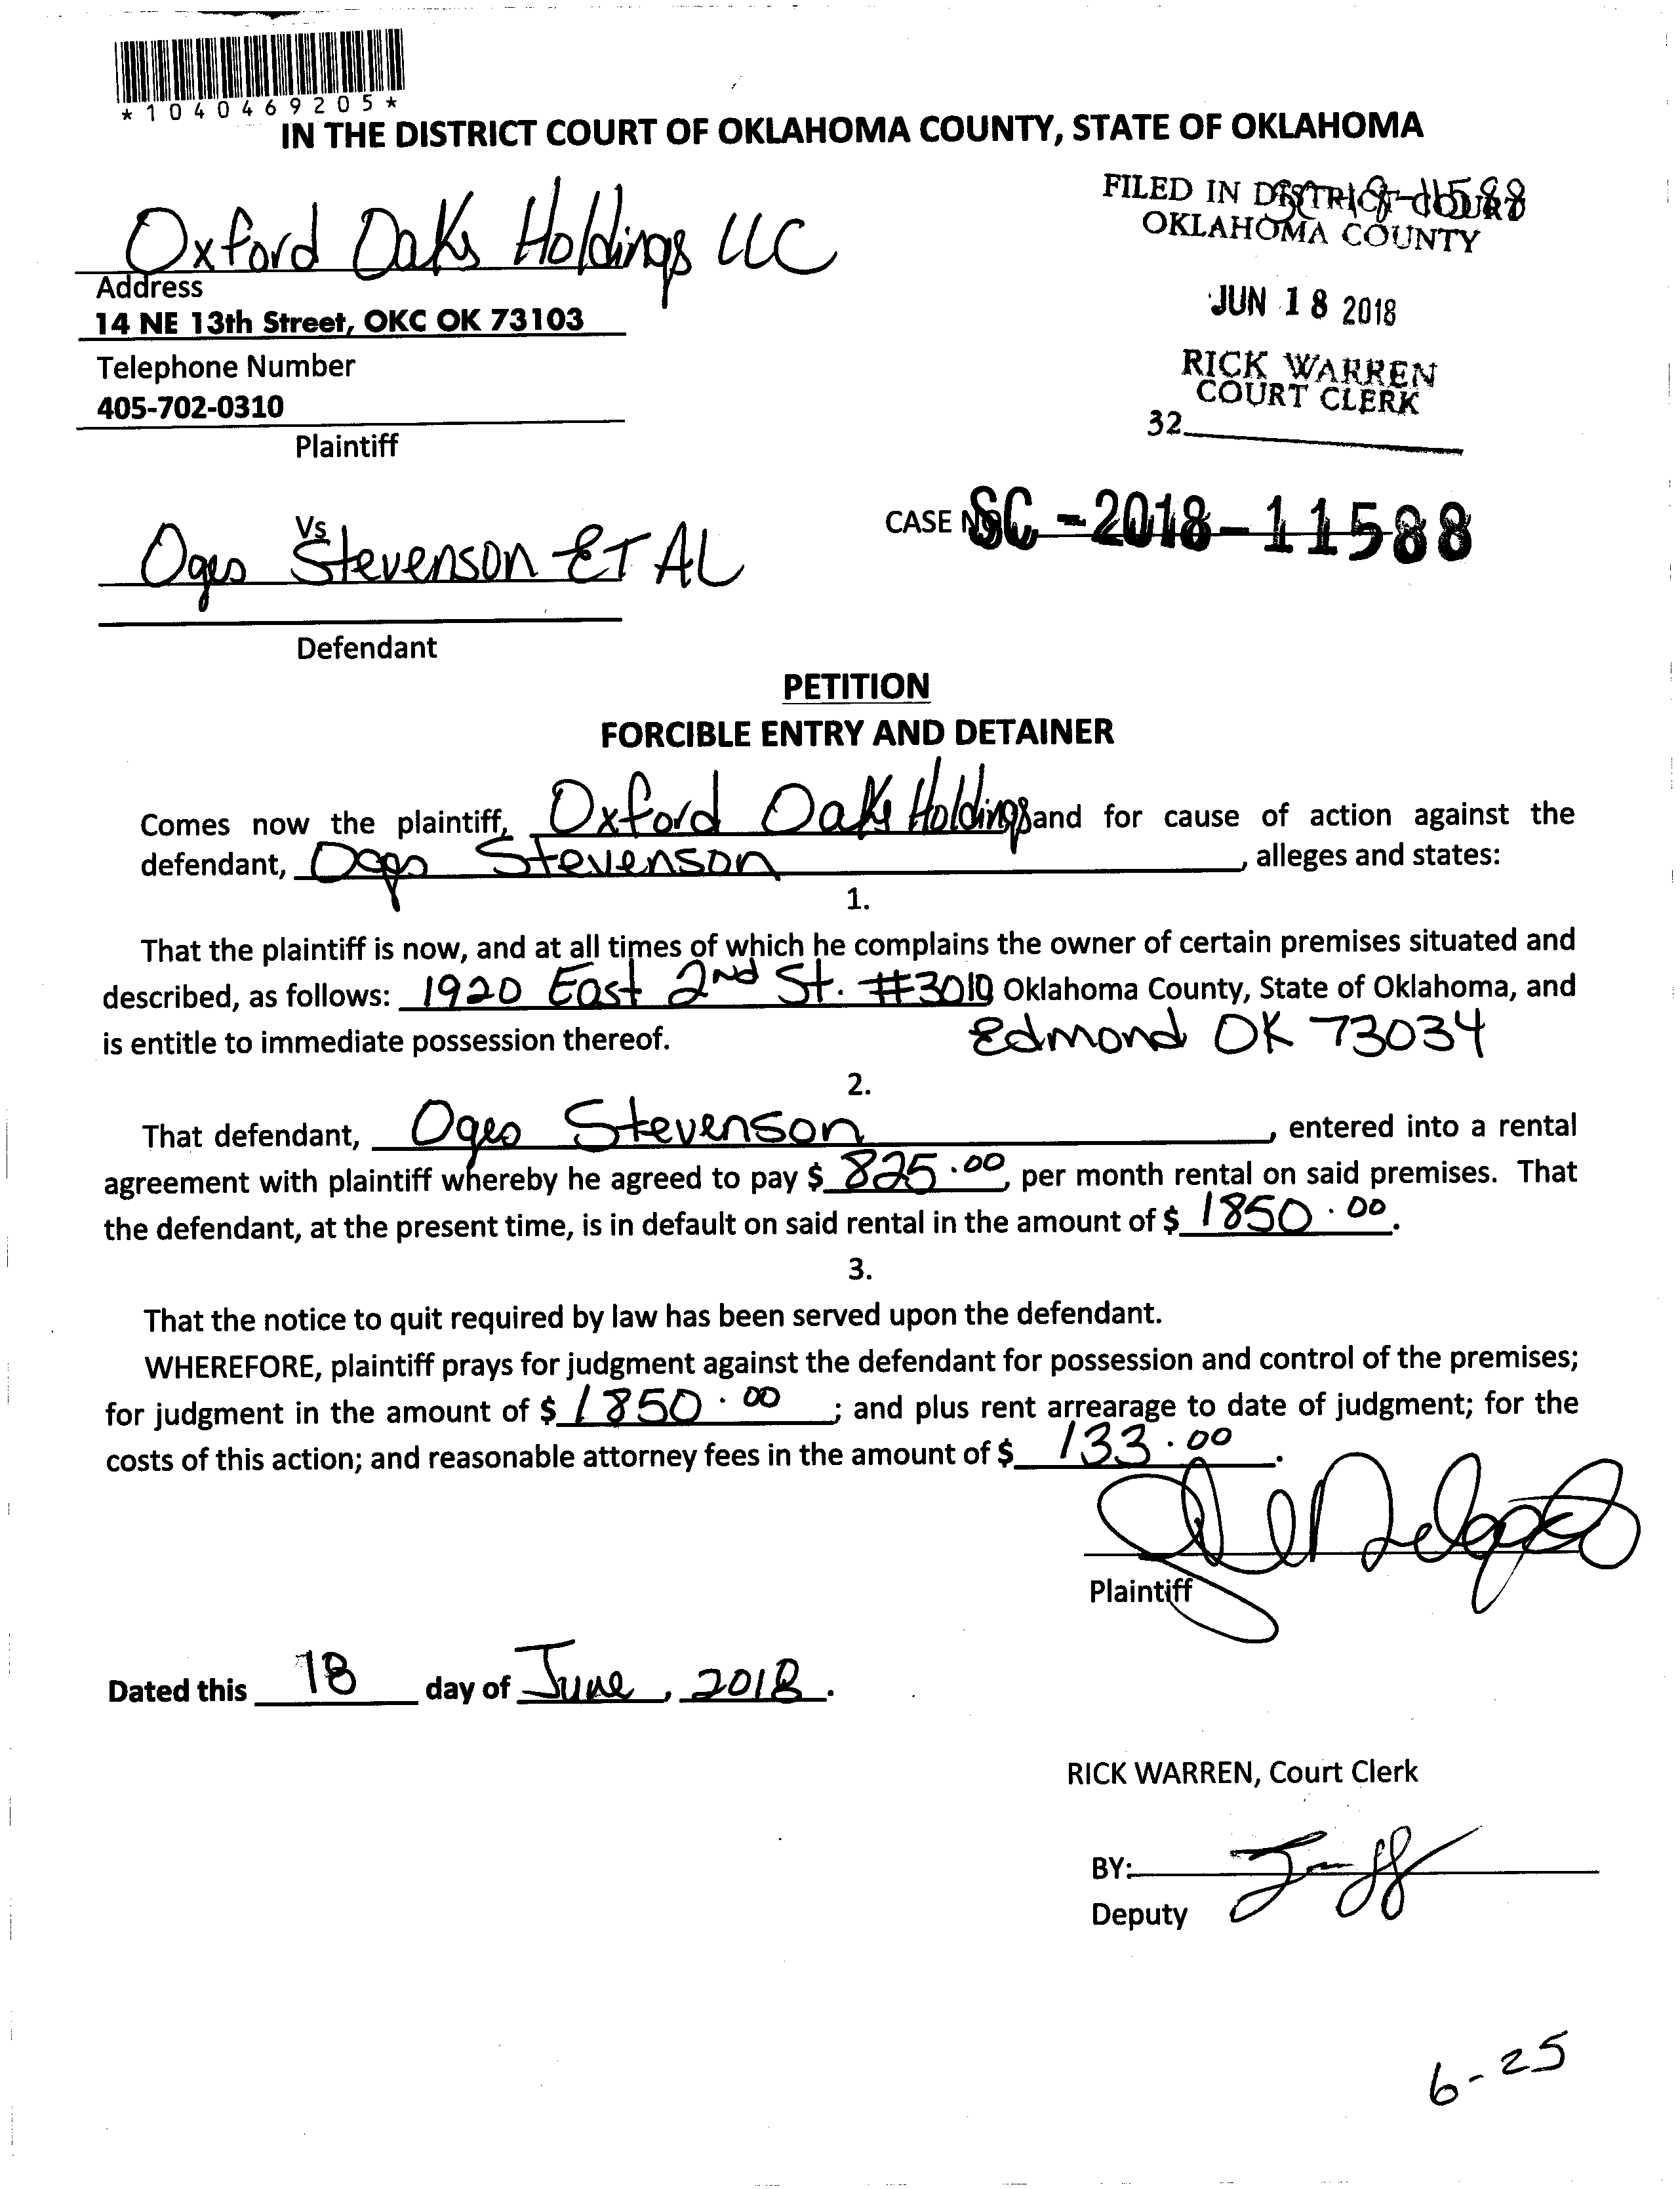 *1040469205*
IN THE DISTRICT COURT OF OKLAHOMA COUNTY, STATE OF OKLAHOMA
Oxford Oaks Holdings LLC
Address
14 NE 13th Street, OKC OK 73103
Telephone Number
405-702-0310
Plaintiff
FILED IN DISTRICT COURT
OKLAHOMA COUNTY
SC-18-11588
JUN 18 2018
RICK WARREN
COURT CLERK
32
Vs
Stevenson ET AL
CASE NO. SC-2018-11588
Defendant
PETITION
FORCIBLE ENTRY AND DETAINER
Comes now the plaintiff, Oxford Oaks Holdings and for cause of action against the
defendant, Stevenson, alleges and states:
1.
That the plaintiff is now, and at all times of which he complains the owner of certain premises situated and
described, as follows: 1920 East 2nd St. Oklahoma County, State of Oklahoma, and
is entitle to immediate possession thereof. Edmond OK 73034
2.
That defendant, Stevenson, entered into a rental
agreement with plaintiff whereby he agreed to pay $ 825.00, per month rental on said premises. That
the defendant, at the present time, is in default on said rental in the amount of $ 1850.00.
3.
That the notice to quit required by law has been served upon the defendant.
WHEREFORE, plaintiff prays for judgment against the defendant for possession and control of the premises;
for judgment in the amount of $ 1850.00; and plus rent arrearage to date of judgment; for the
costs of this action; and reasonable attorney fees in the amount of $ 133.00.
Plaintiff
Dated this 18 day of June, 2018.
RICK WARREN, Court Clerk
BY:
Deputy
6-25